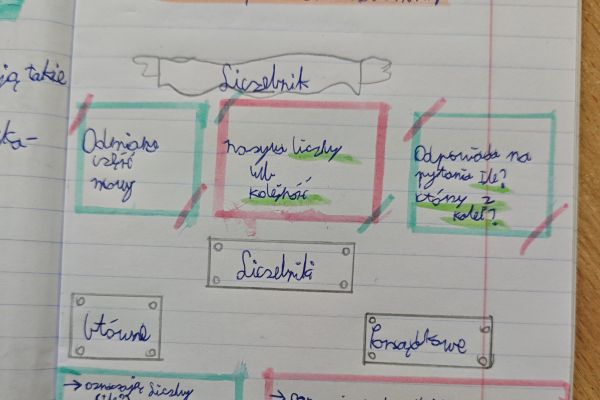 ją także
Liczebnik
Odmienna
część
mowy
nazywa liczby
lub
kolejność
Odpowiada na
pytania Ile?
który z
kolei?
Liczebniki
Główne
Porządkowe
→ oznaczają liczby